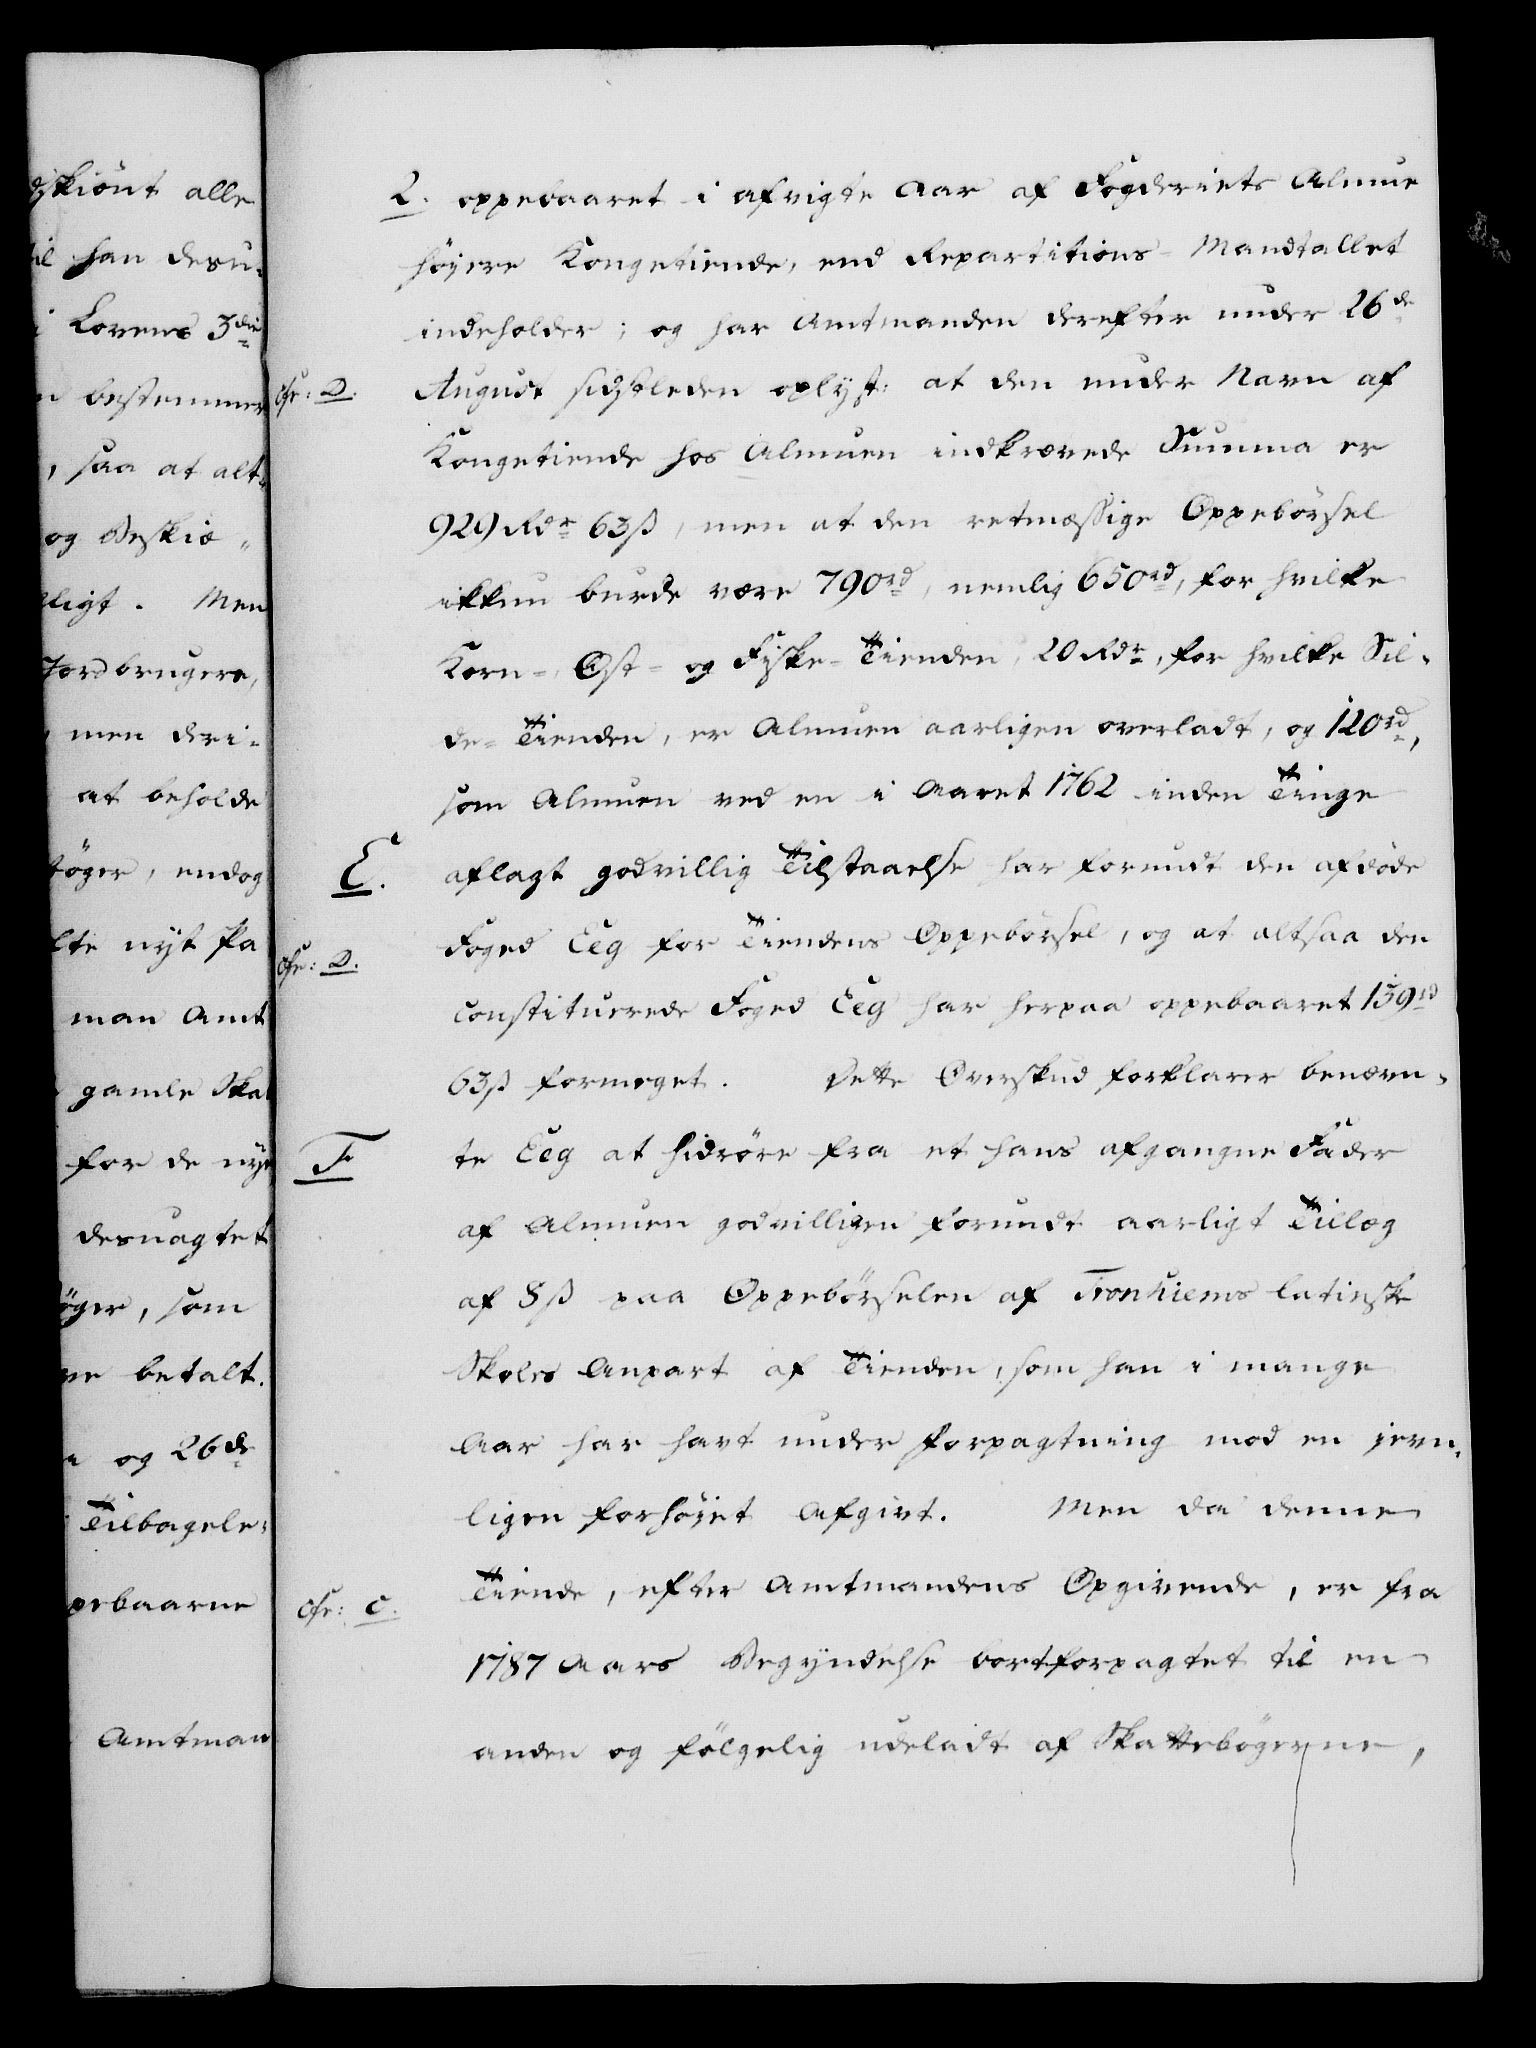 dskiönt alle
til han desu-
i Lovens 3die
n bestemmer
, saa at alt-
og Beskie-
ligt. Men
Jordbrugere,
men dri-
at beholde
töger, endog
lte nyt ska
man Amt
gamle Skat
for de nye
desuagtet
öger, som
ve betalt.
og 26de
Tilbagele-
pebaarne
Amtman
2. oppebaaret i afvigte Aar af Fogderiets Almue
höiere Kongetiende, end Repartitions-Mandtallet
indeholder; og har Amtmanden derefter under 26de
cfr: D. August sidstleden oplyst: at den under Navn af
Kongetiende hos Almuen indkrævede Summa er
929 Rdr 63ß, men at den retmæssige Oppebörsel
ikkun burde være 790rd, nemlig 650rd, for hvilke
Korn-, Ost- og Fiske-Tienden, 20 Rdr, for hvilke Sil-
de-Tienden, er Almuen aarligen overladt, og 120rd,
som Almuen ved en i Aaret 1762 inden Tinge
E. aflagt godvillig Tilstaaelse har forundt den afdöde
Foged Eeg for Tiendens Oppebörsel, og at altsaa den
cfr: D. constituerede Foged Eeg har herpaa oppebaaret 139rd
63ß formeget. Dette Overskud forklarer benævn-
F te Eeg at hidröre fra et hans afgangne Fader
af Almuen godvilligen forundt aarligt Tillæg
af 8ß paa Oppebörselen af Tronhiems latinske
Skoles Anpart af Tienden, som han i mange
Aar har havt under Forpagtning mod en jevn-
ligen forhöiet Afgivt. Men da denne
cfr: C. Tiende, efter Amtmandens Opgivende, er fra
1787 Aars Begyndelse bortforpagtet til en
anden og fölgelig udeladt af Skattebögerne,